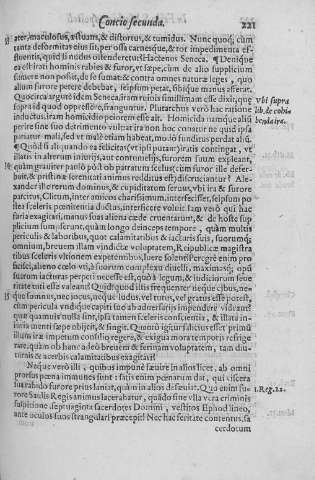 Concio secunda. 221
ater, maculosus, æstuans, & distortus, & tumidus. Nunc quoq; cum
tanta deformitas eius sit, per ossa carnesque, & tot impedimenta ef-
fluentis, quid si nudus ostenderetur? Hactenus Seneca. ¶ Denique
ea est irati hominis rabies & furor, vt sæpe, cùm de alio supplicium
sumere non possit, de se sumat: & contra omnes naturæ leges, quo
alium furore petere debebat, seipsum petat, sibique manus afferat.
Quocirca argutè idem Seneca, iram ruinis simillimam esse dixit, quæ
supra id quod oppressêre, franguntur. Plutarchus verò hac ratione
inductus, iram homicidio peiorem esse ait. Homicida namque aliũ
perire sine suo detrimento vultat ira non hoc constare ne quid ipsa
patiatur mali, sed vt malè etiam habeat, modò funditus perdat aliũ.
Vbi supra
lib. de cohib
benda ira.
¶ Quòd si aliquando ea felicitas (vt ipsi putant) iratis contingat, vt
illatis in alterum iniurijs, aut contumelijs, furorem suum expleant,
quàm grauiter paulò pòst ob patratum scelus, cùm furor ille defer-
buit, & pristinæ serenitati animus redditus est, discruciantur? Ale-
xander ille rerum dominus, & cupiditatum seruus, vbi ira & furore
percitus, Clitum, inter amicos charissimum, interfecisset, seipsum po
stea sceleris pœnitentia ductus, interficere voluit: tam verò qui hac
furia exagitati, manus suas aliena cæde cruentarunt, & de hoste sup
plicium sumpserunt, quàm longo deinceps tempore, quàm multis
periculis & laboribus, quot calamitatibus & iacturis suis, suorumq;
omnium, breuem illam vindictæ voluptatem, Reipublicæ magistra
tibus sceleris vltionem expetentibus, luere solent? Peregrè enim pro
ficisci, alieno cœlo vti, à suorum complexu diuelli, maximasq; opũ
suarum iacturas perpeti necesse est, quò à legum, & iudiciorum seue
ritate tuti esse valeant? Quid quod illis frequenter neque cibus, ne-
que somnus, nec iocus, neque ludus, vel tutus, vel gratus esse potest,
cùm periculum vndique capiti suo ab aduersarijs impendere videant?
quæ quamuis nulla sint, ipsa tamen sceleris conscientia, & illata in-
iuria menti sæpe obijcit, & fingit. Quantò igitur satius est primũ
illum iræ impetum consilio regere, & exigua mora temporis refrige
rare, quàm ob hanc adeò breuem & ferinam voluptatem, tam diu-
turnis & acerbis calamitatibus exagitari?
Neque verò illi, quibus impunè sæuire in alios licet, ab omni
prorsus pœna immunes sunt: satis enim pœnarum dat, qui viscera
sua rabido furore prius laniat, quàm in alios desæuiat. Quo enim fu-
1.Reg.22.
rore Saulis Regis animus lacerabatur, quádo sine vlla vera criminis
suspitione, septuaginta sacerdotes Domini, vestitos Ephod lineo,
ante oculos suos strangulari præcepit? Nec hac feritate contentus, sa
cerdotum